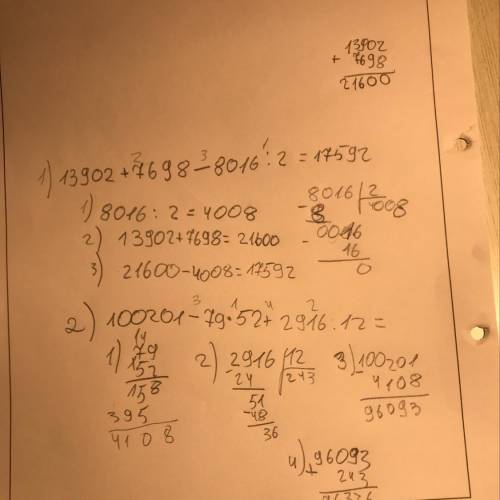 13902
+ 7698
21600
2 3 1
1) 13902+7698-8016:2=17592
1) 8016:2=4008
2) 13902+7698=21600
3) 21600-4008=17592
- 8016 2
8 4008
- 0016
16
0
3 1 4 2
2) 100201-79·52+2916:12=
1) 79
52
158
395
4108
2) - 2916 12
24 243
51
- 48
36
3) - 100201
4108
96093
4) + 96093
243
96336